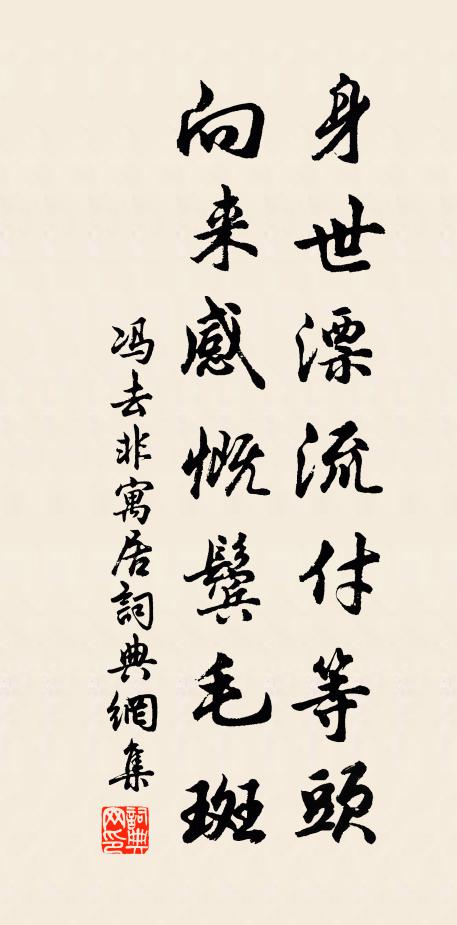 身世漂流付等頭
向来感慨鬓毛斑
冯去非寓居詞典網集
詞典网印